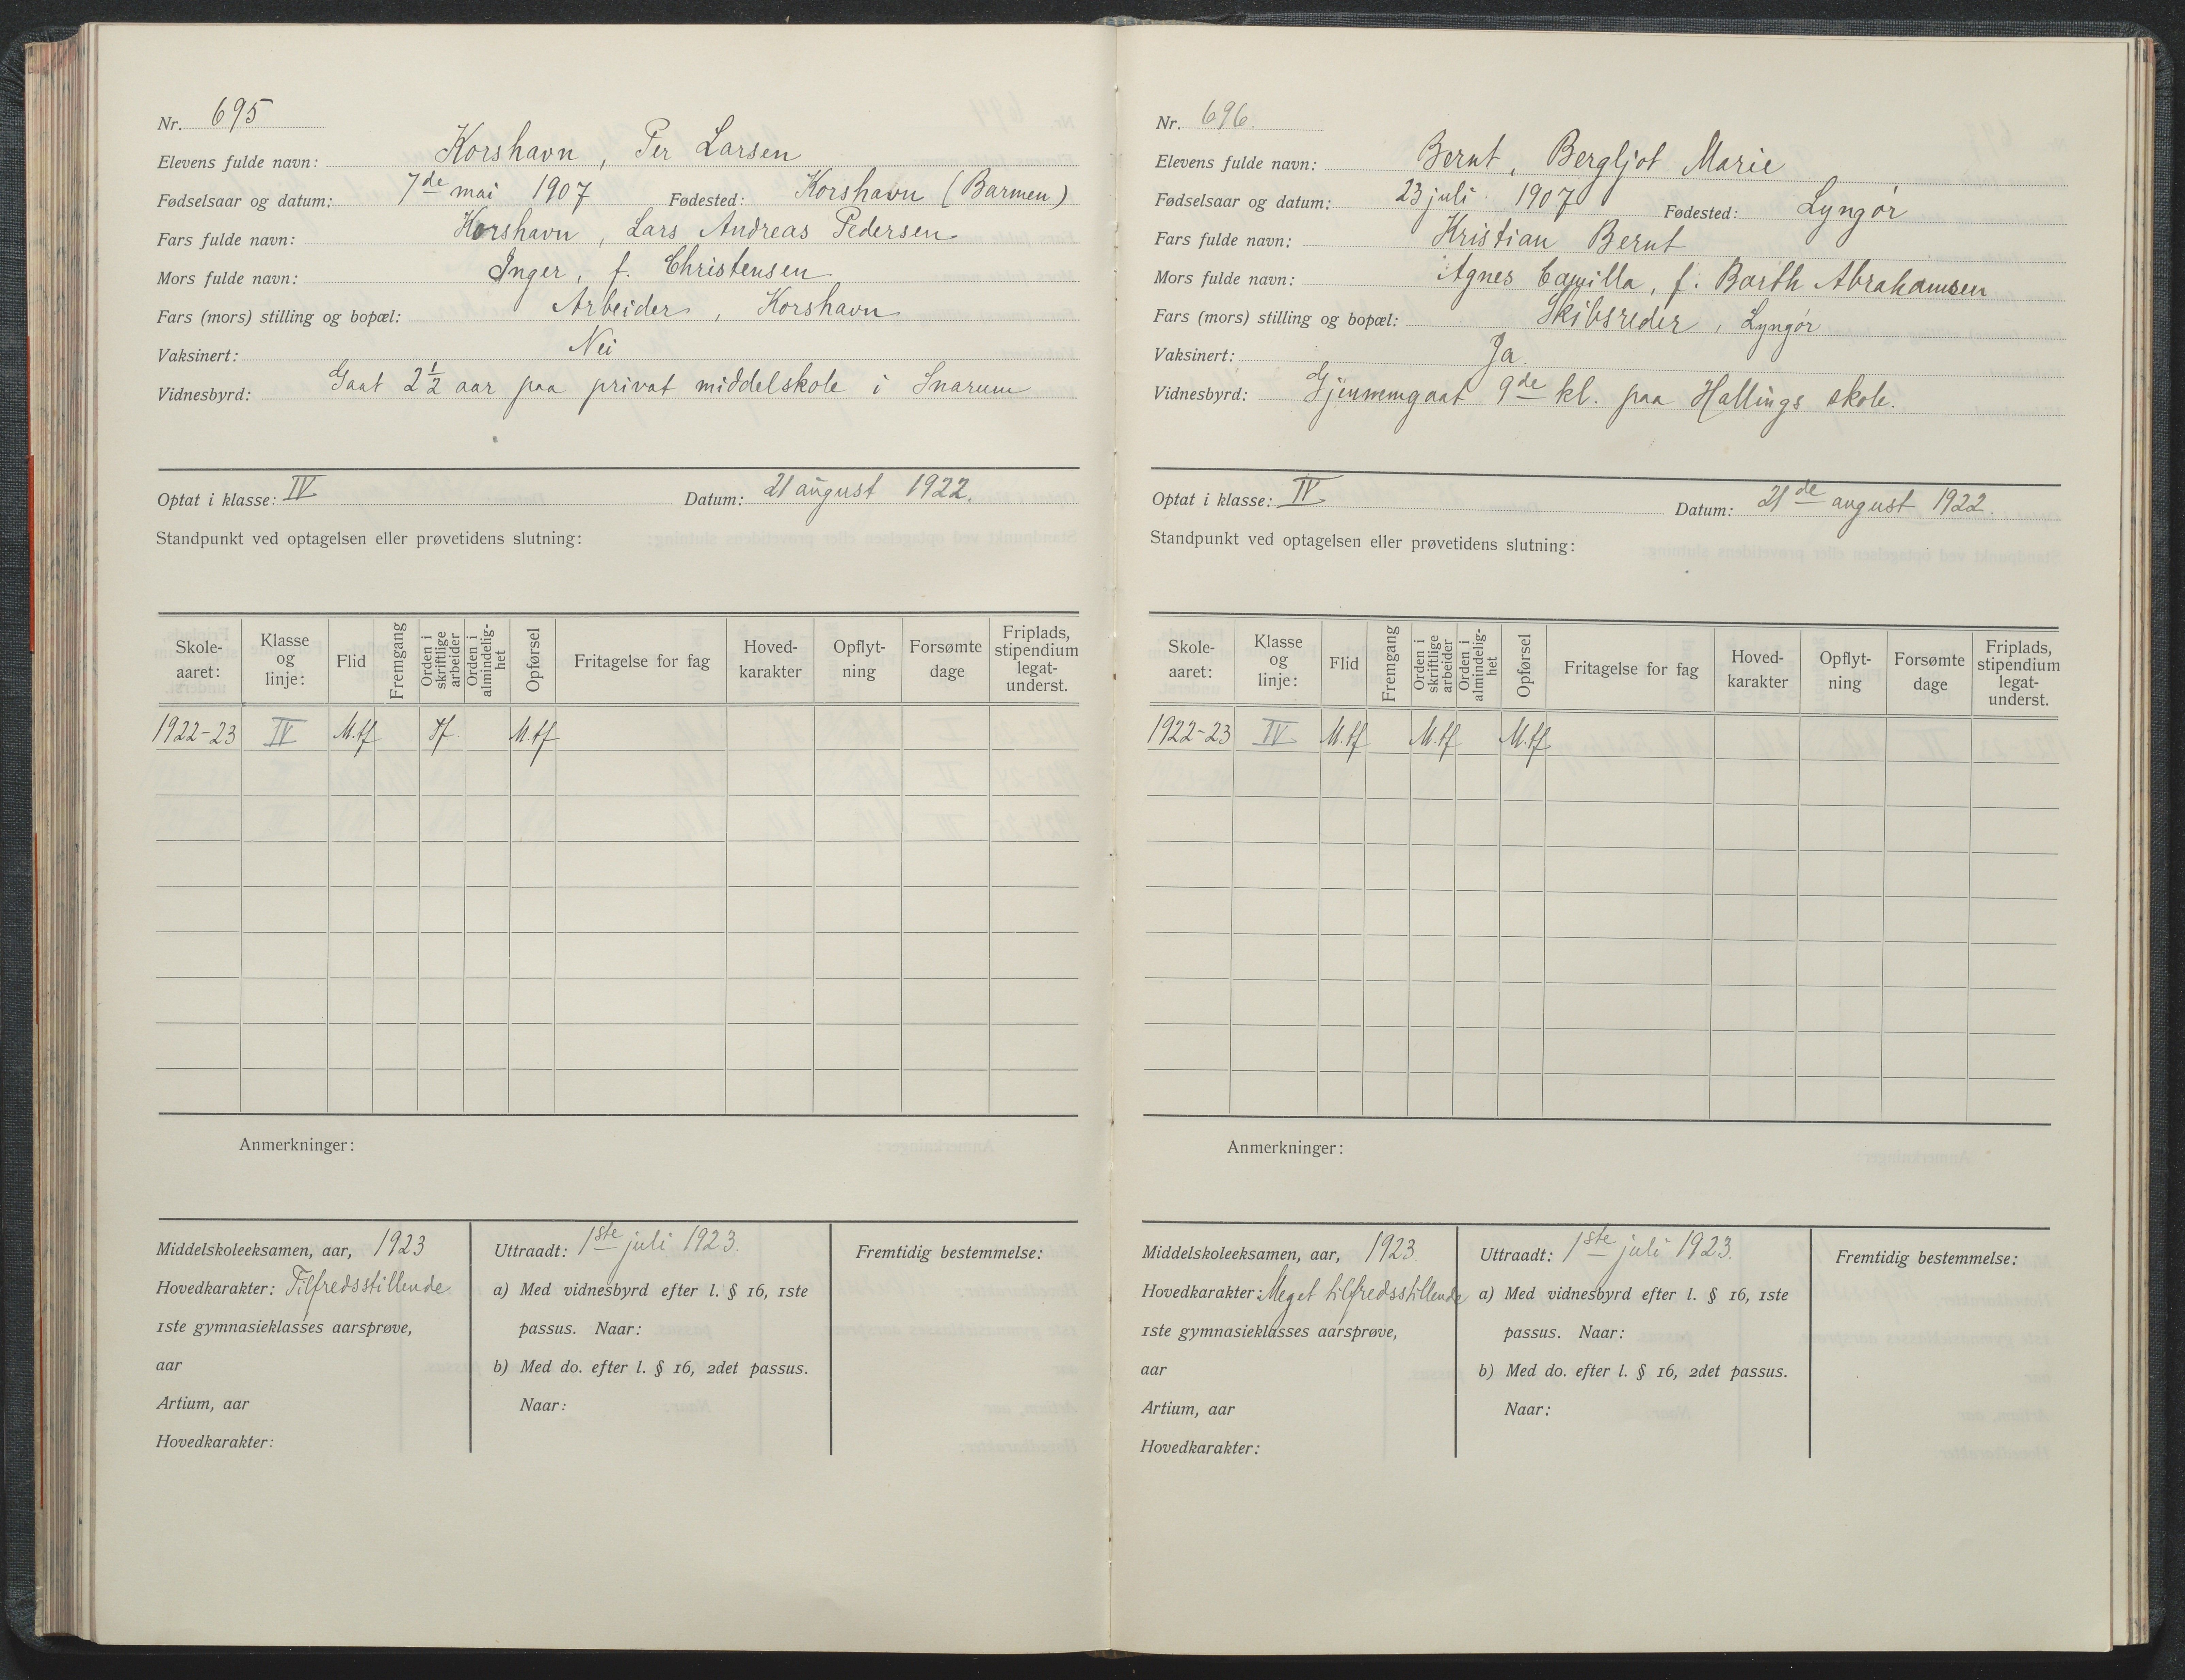 Nr. 695
Elevens fulde navn: Korshavn, Per Larsen
Fødselsaar og datum: 7de mai 1907 Fødested: Korshavn (Barmen)
Fars fulde navn: Korshavn, Lars Andreas Pedersen
Mors fulde navn: Inger, f. Christensen
Fars (mors) stilling og bopæl: Arbeider, Korshavn
Vaksinert: Nei
Vidnesbyrd: Gaat 2½ aar paa privat middelskole i Snarum
Optat i klasse: IV Datum: 21 august 1922.
Standpunkt ved optagelsen eller prøvetidens slutning:
Skole-aaret: Klasse og linje: Flid Fremgang Orden i skriftlige arbeider Orden i almindelig-het Opførsel Fritagelse for fag Hoved-karakter Opflyt-ning Forsømte dage Friplads, stipendium legat-underst.
1922-23 IV M.tf Tf. M.tf
Anmerkninger:
Middelskoleeksamen, aar, 1923
Hovedkarakter: Tilfredsstillende
1ste gymnasieklasses aarsprøve,
aar
Artium, aar
Hovedkarakter:
Uttraadt: 1ste juli 1923.
a) Med vidnesbyrd efter l. § 16, 1ste
passus. Naar:
b) Med do. efter l. § 16, 2det passus.
Naar:
Fremtidig bestemmelse:
Nr. 696.
Elevens fulde navn: Bernt, Bergljot Marie
Fødselsaar og datum: 23 juli 1907 Fødested: Lyngør
Fars fulde navn: Kristian Bernt
Mors fulde navn: Agnes Camilla, f. Barth Abrahamsen
Fars (mors) stilling og bopæl: Skibsreder, Lyngør
Vaksinert: Ja.
Vidnesbyrd: Gjennemgaat 9de kl. paa Hallings skole.
Optat i klasse: IV Datum: 21de august 1922.
Standpunkt ved optagelsen eller prøvetidens slutning:
Skole-aaret: Klasse og linje: Flid Fremgang Orden i skriftlige arbeider Orden i almindelig-het Opførsel Fritagelse for fag Hoved-karakter Opflyt-ning Forsømte dage Friplads, stipendium legat-underst.
1922-23 IV M.tf M.tf M.tf
Anmerkninger:
Middelskoleeksamen, aar, 1923.
Hovedkarakter: Meget tilfredsstillende
1ste gymnasieklasses aarsprøve,
aar
Artium, aar
Hovedkarakter:
Uttraadt: 1ste juli 1923.
a) Med vidnesbyrd efter l. § 16, 1ste
passus. Naar:
b) Med do. efter l. § 16, 2det passus.
Naar:
Fremtidig bestemmelse: